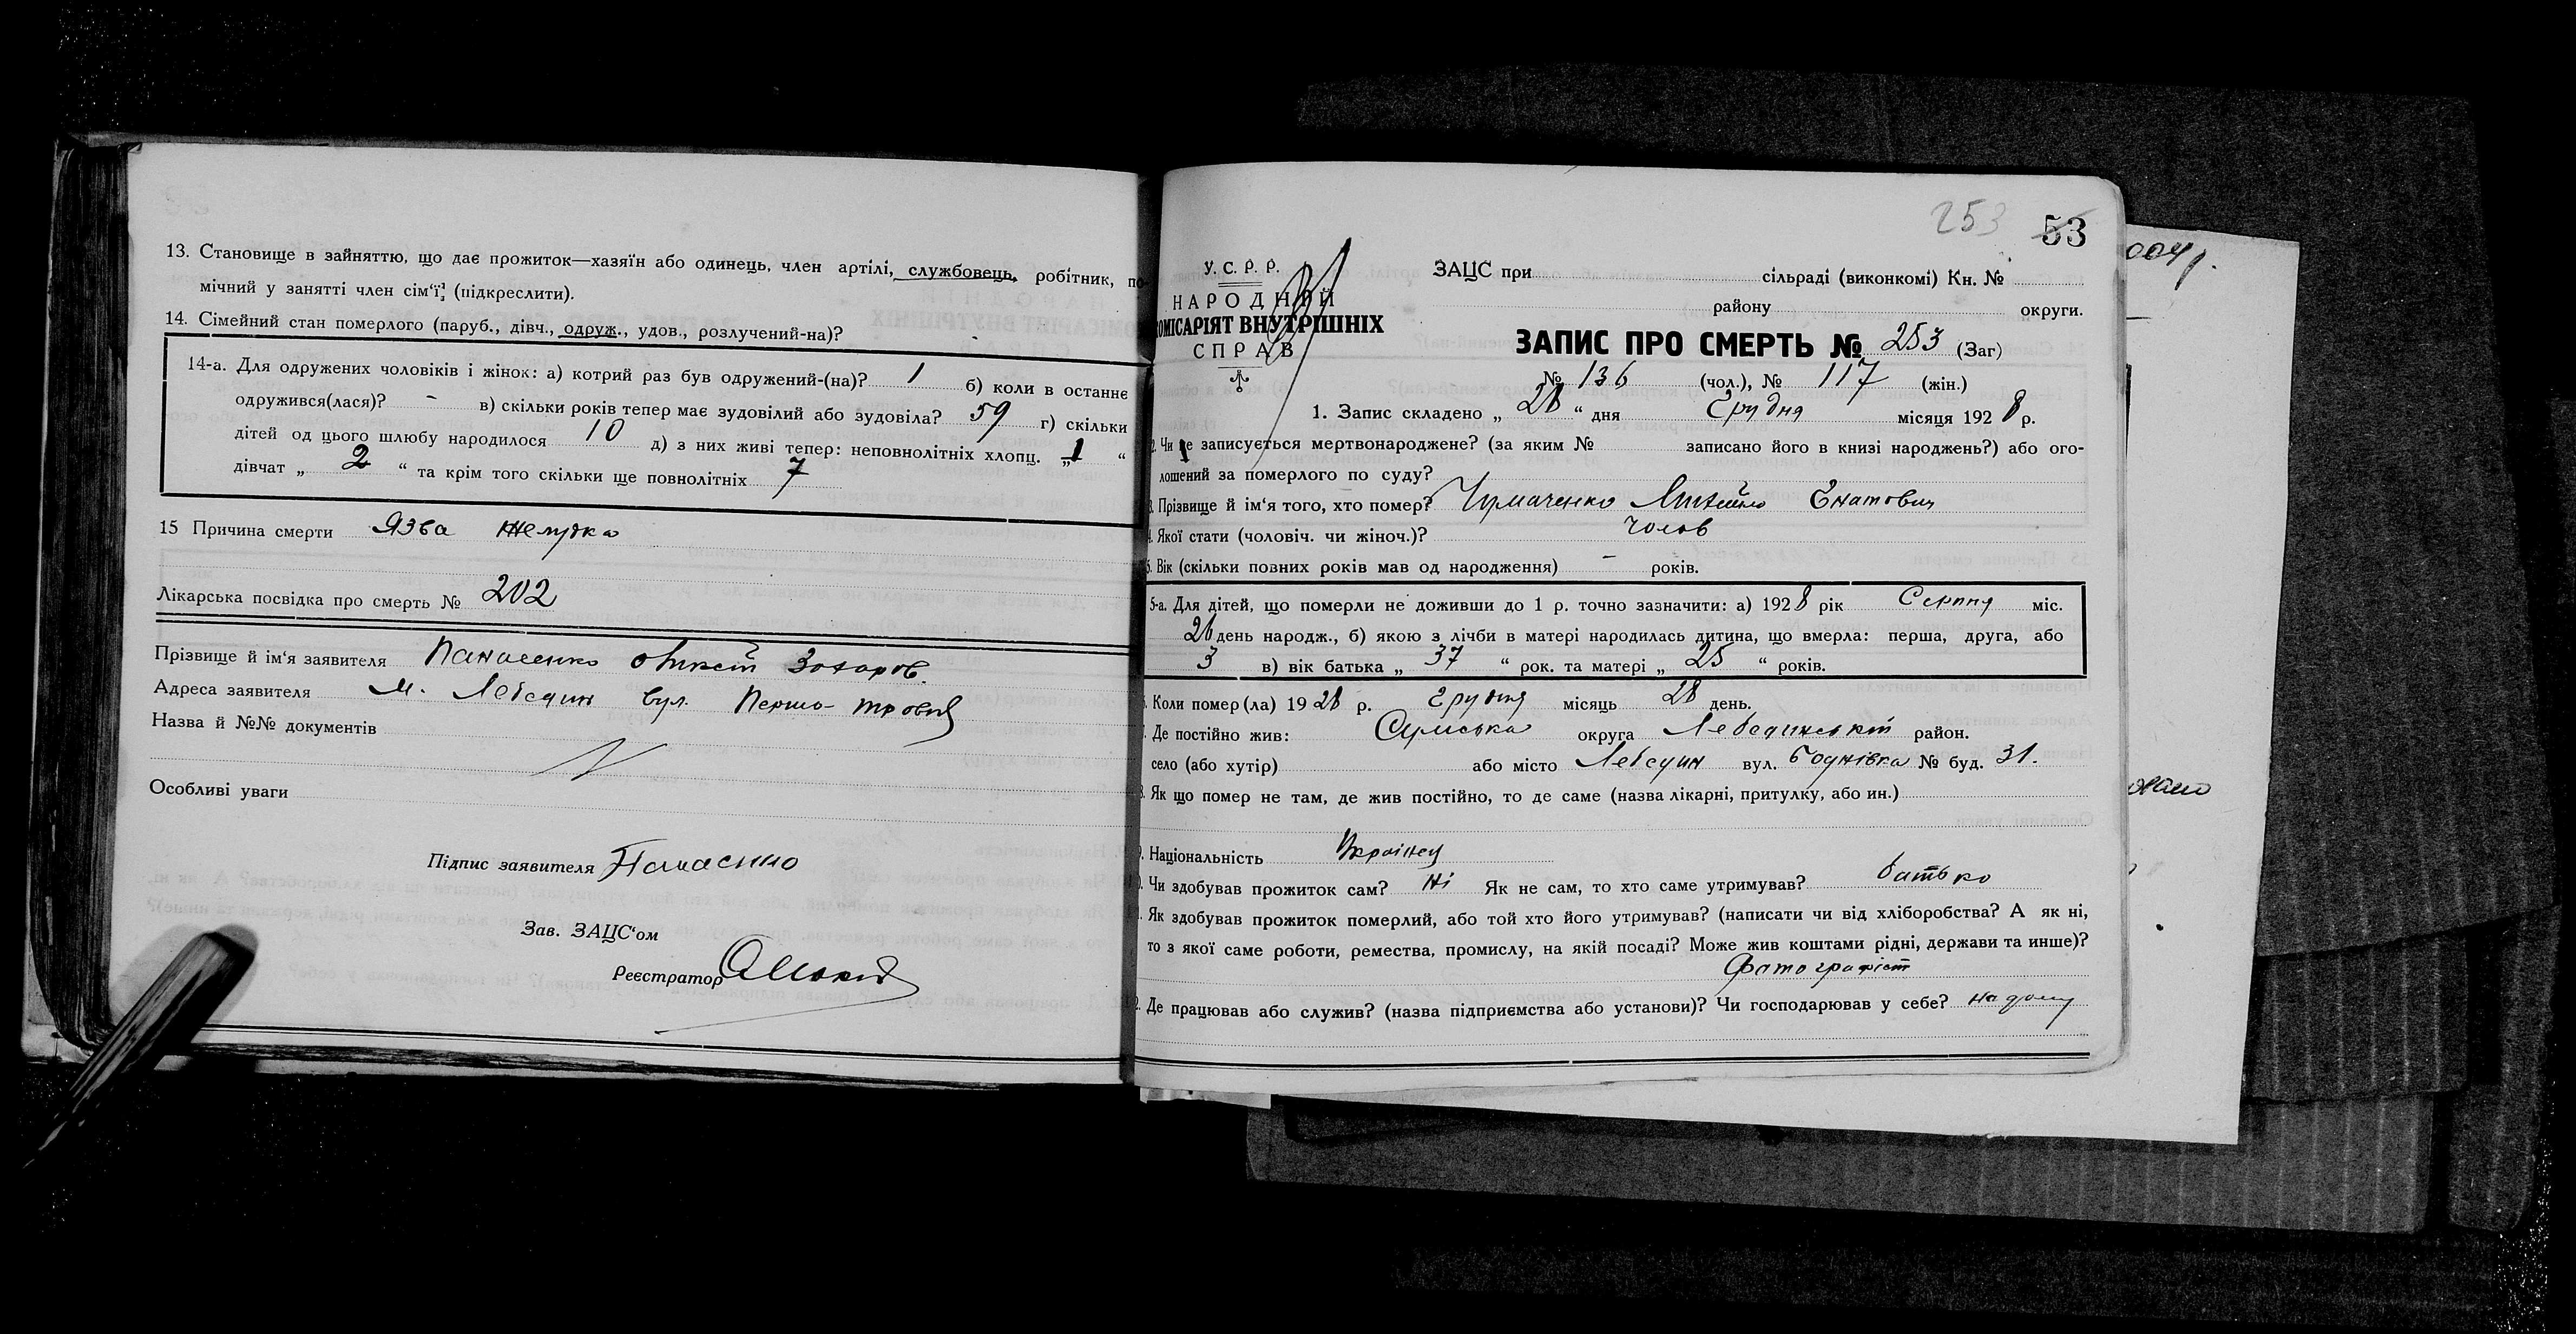 13. Становище в зайняттю, що дає прожиток—хазяїн або одинець, член артілі, службовець, робітник, по-
мічний у занятті член сім'ї (підкреслити).
14. Сімейний стан померлого (паруб., дівч., одруж., удов., розлучений-на)?
14-а. Для одружених чоловіків і жінок: а) котрий раз був одружений-(на)? 1 б) коли в останнє
одружився(лася)? - в) скільки років тепер має зудовілий або зудовіла? 59 г) скільки
дітей од цього шлюбу народилося 10 д) з них живі тепер: неповнолітніх хлопц. „ 1 “
дівчат „ 2 “ та крім того скільки ще повнолітніх 7
15 Причина смерти Язва желудка
Лікарська посвідка про смерть № 202
Прізвище й ім'я заявителя Панасенко Захаров.
Адреса заявителя м. Лебедин вул. Першо-
Назва й №№ документів
Особливі уваги
Підпис заявителя Панасенко
Зав. ЗАЦС'ом
Реєстратор
253 53
У. С. Р. Р.
НАРОДНІЙ
КОМІСАРІЯТ ВНУТРІШНІХ
СПРАВ
ЗАЦС при сільраді (виконкомі) Кн. №
району округи.
ЗАПИС ПРО СМЕРТЬ № 253 (Заг)
№ 136 (чол.), № 117 (жін.)
1. Запис складено „ 28 “ дня Грудня місяця 1928 р.
2. Чи не записується мертвонароджене? (за яким № записано його в книзі народжень?) або ого-
лошений за померлого по суду?
3. Прізвище й ім'я того, хто помер? Чумаченко Михайло Гнатович
4. Якої стати (чоловіч. чи жіноч.)? чолов
5. Вік (скільки повних років мав од народження) - років.
5-а. Для дітей, що померли не доживши до 1 р. точно зазначити: а) 1928 рік Серпня міс.
26 день народж., б) якою з лічби в матері народилась дитина, що вмерла: перша, друга, або
3 в) вік батька „ 37 “ рок. та матері „ 25 “ років.
6. Коли помер(ла) 1928 р. Грудня місяць 28 день.
7. Де постійно жив: Сумська округа Лебединський район.
село (або хутір) або місто Лебедин вул. № буд. 31.
8. Як що помер не там, де жив постійно, то де саме (назва лікарні, притулку, або ин.)
9. Національність Українец
10. Чи здобував прожиток сам? Ні Як не сам, то хто саме утримував? батько
11. Як здобував прожиток померлий, або той хто його утримував? (написати чи від хліборобства? А як ні,
то з якої саме роботи, ремества, промислу, на якій посаді? Може жив коштами рідні, держави та инше)?
Фатографіст
12. Де працював або служив? (назва підприємства або установи)? Чи господарював у себе? на дому